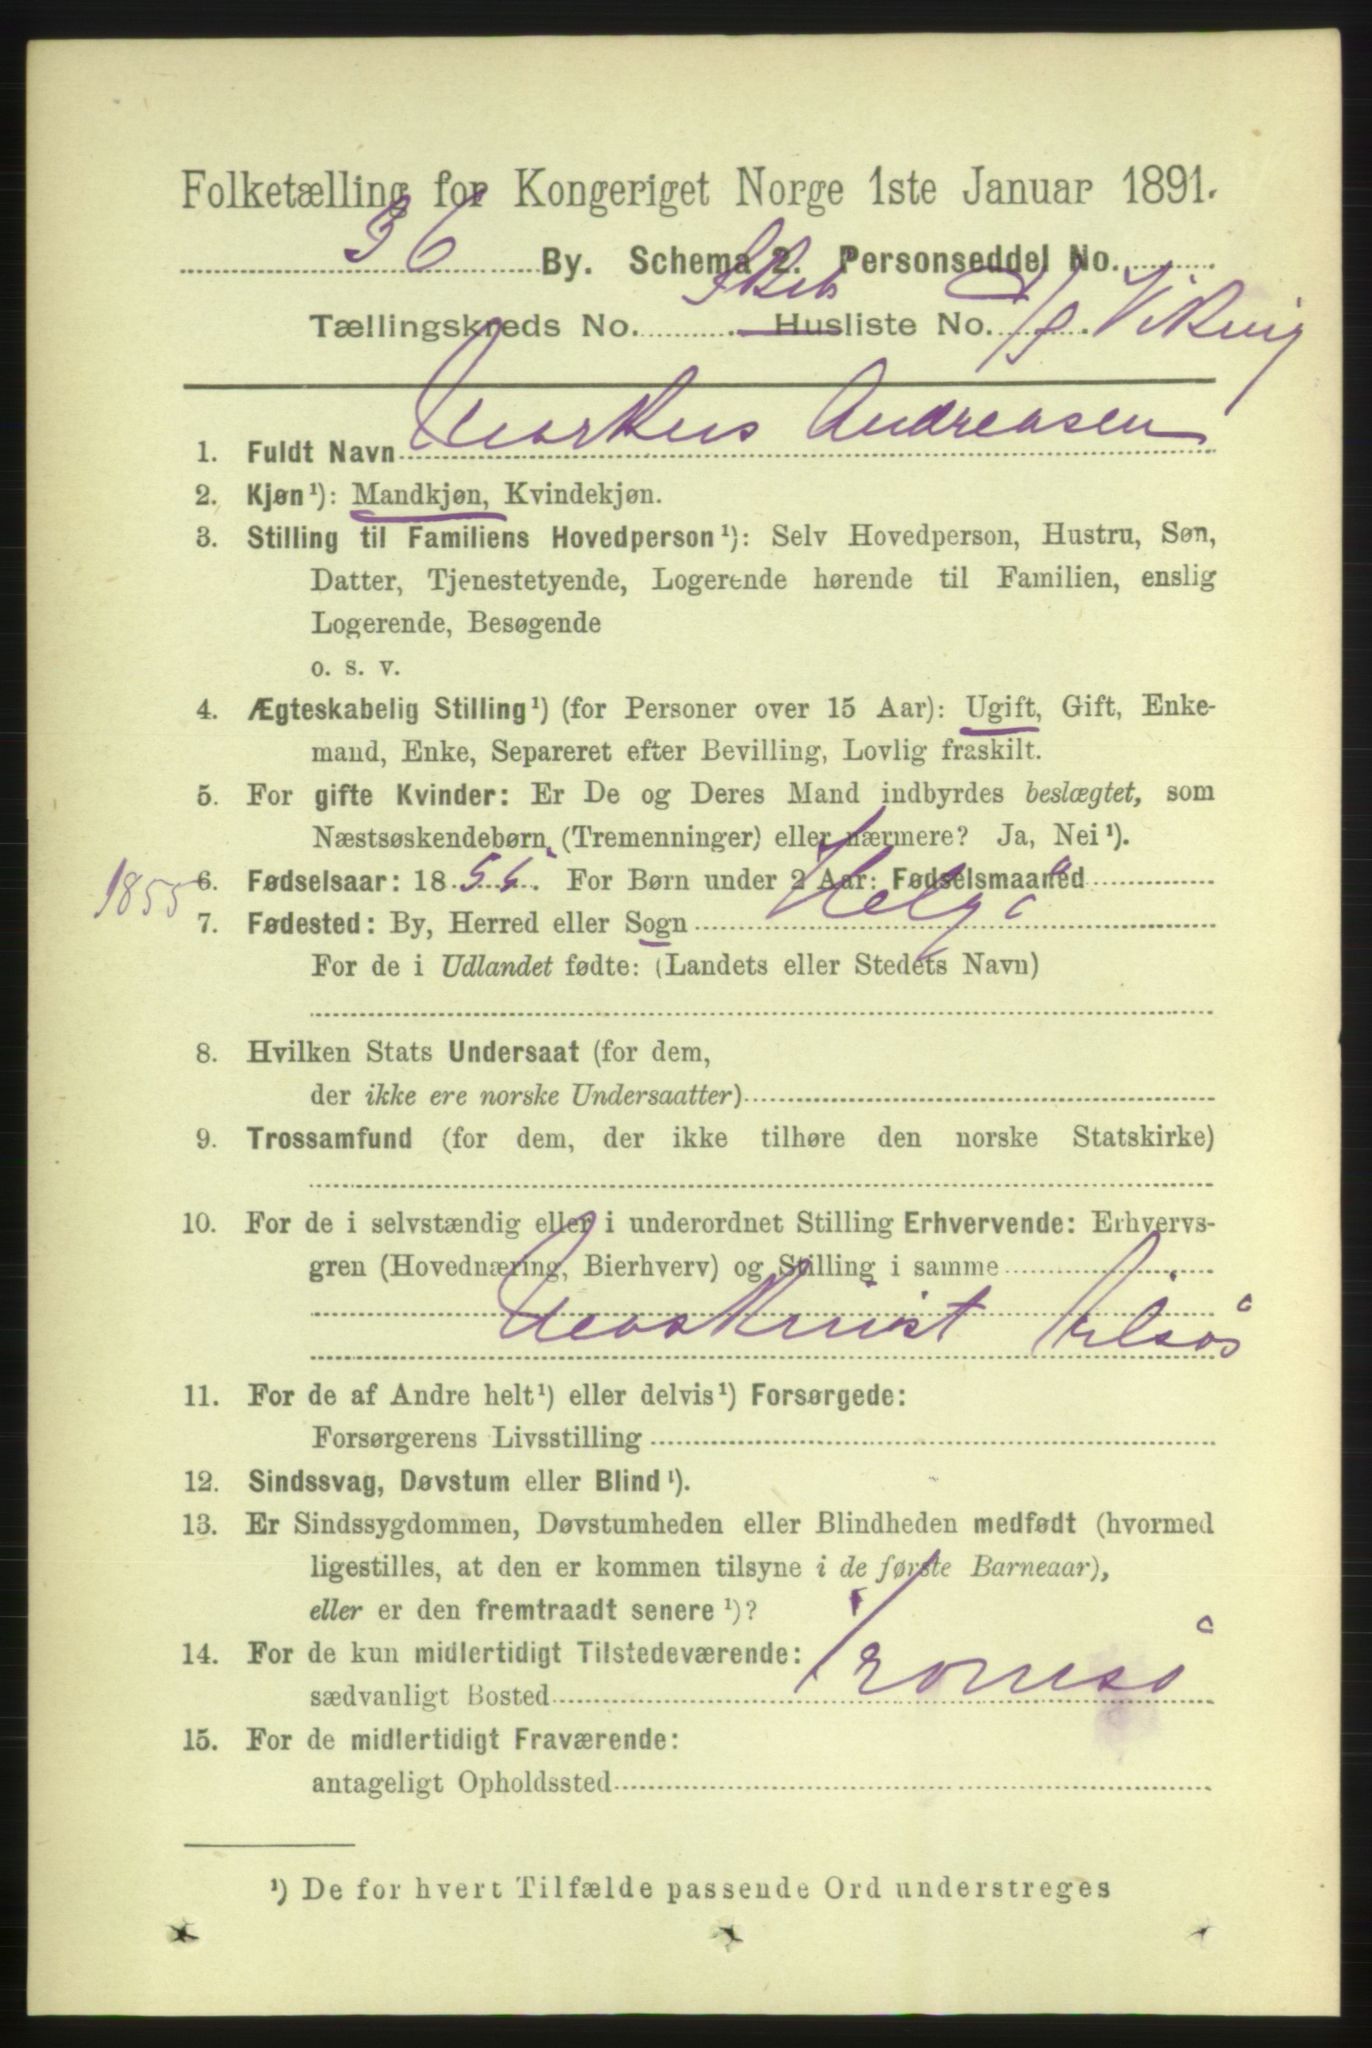 Folketælling for Kongeriget Norge 1ste Januar 1891.
36 By. Schema 2. Personseddel No.
Tællingskreds No. Skib Husliste No. D/S Viking
1. Fuldt Navn Markus Andreasen
2. Kjøn¹): Mandkjøn, Kvindekjøn.
3. Stilling til Familiens Hovedperson¹): Selv Hovedperson, Hustru, Søn,
Datter, Tjenestetyende, Logerende hørende til Familien, enslig
Logerende, Besøgende
o. s. v.
4. Ægteskabelig Stilling¹) (for Personer over 15 Aar): Ugift, Gift, Enke-
mand, Enke, Separeret efter Bevilling, Lovlig fraskilt.
5. For gifte Kvinder: Er De og Deres Mand indbyrdes beslægtet, som
Næstsøskendebørn (Tremenninger) eller nærmere? Ja, Nei¹).
1855 6. Fødselsaar: 1855. For Børn under 2 Aar: Fødselsmaaned
7. Fødested: By, Herred eller Sogn Helgø
For de i Udlandet fødte: (Landets eller Stedets Navn)
8. Hvilken Stats Undersaat (for dem,
der ikke ere norske Undersaatter)
9. Trossamfund (for dem, der ikke tilhøre den norske Statskirke)
10. For de i selvstændig eller i underordnet Stilling Erhvervende: Erhvervs-
gren (Hovednæring, Bierhverv) og Stilling i samme
Maskinist
11. For de af Andre helt¹) eller delvis¹) Forsørgede:
Forsørgerens Livsstilling
12. Sindssvag, Døvstum eller Blind¹).
13. Er Sindssygdommen, Døvstumheden eller Blindheden medfødt (hvormed
ligestilles, at den er kommen tilsyne i de første Barneaar),
eller er den fremtraadt senere¹)?
14. For de kun midlertidigt Tilstedeværende:
sædvanligt Bosted Tromsö
15. For de midlertidigt Fraværende:
antageligt Opholdssted
¹) De for hvert Tilfælde passende Ord understreges